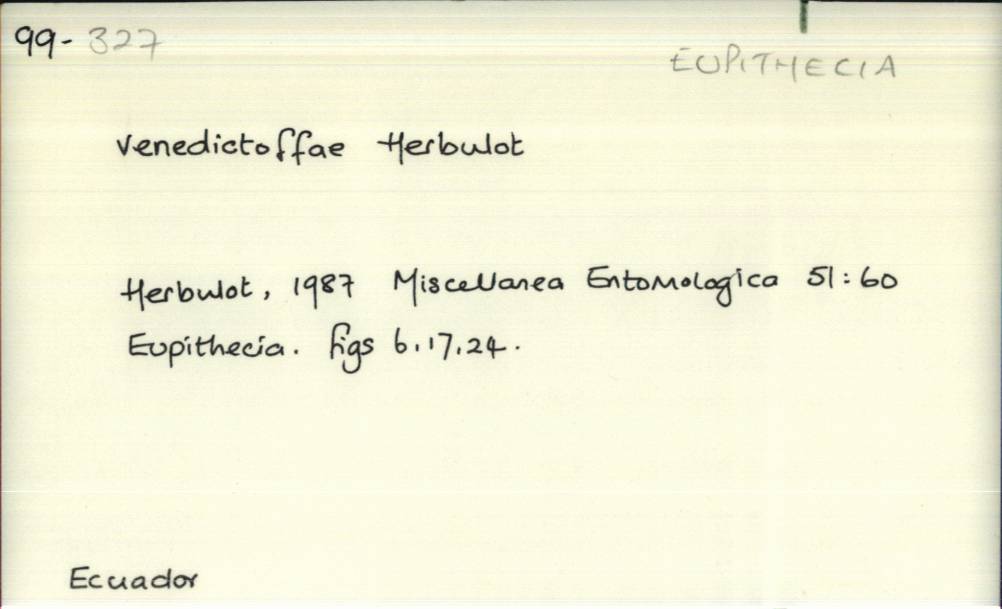 99-327
EUPITHECIA
venedictoffae Herbulot
Herbulot, 1987 Miscellanea Entomologica 51:60
Eupithecia. figs 6,17,24.
Ecuador